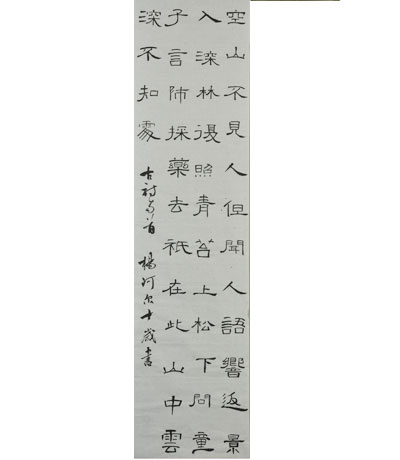 空山不見人但聞人語響返景
入深林復照青苔上松下問童
子言師採藥去祇在此山中雲
深不知處
古詩 首 楊 十歲書